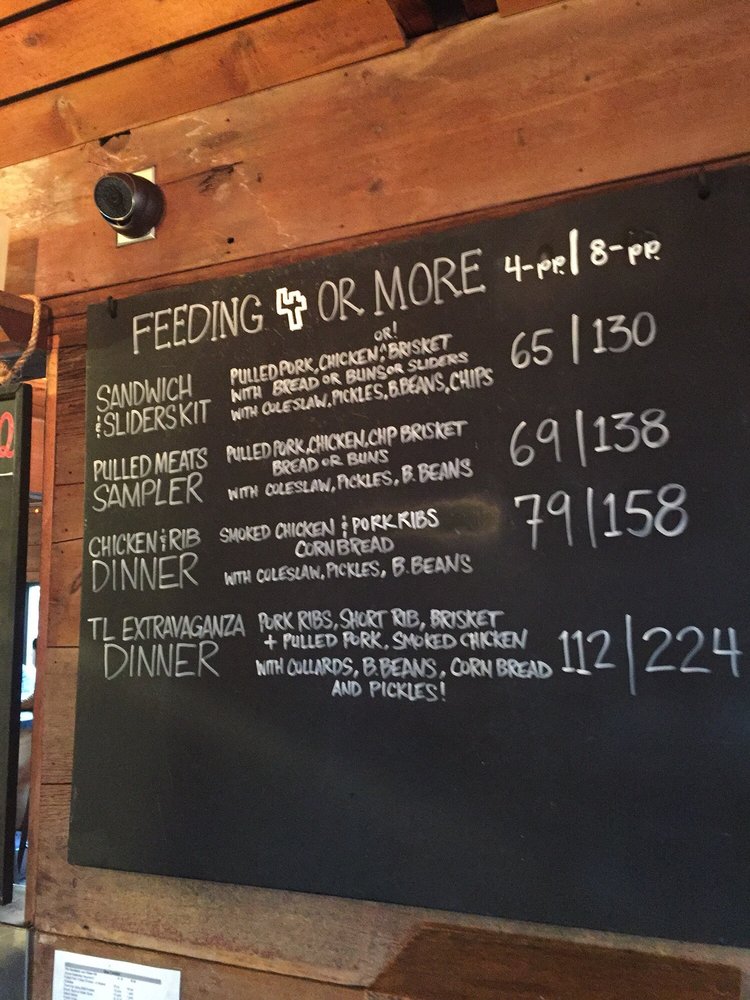 FEEDING 4 OR MORE 4-pp. | 8-pp.
SANDWICH
& SLIDERS KIT
OR!
PULLED PORK, CHICKEN, ^ BRISKET
WITH BREAD OR BUNS OR SLIDERS
WITH COLESLAW, PICKLES, B.BEANS, CHIPS
65 | 130
PULLED MEATS
SAMPLER
PULLED PORK, CHICKEN, CHP BRISKET
BREAD OR BUNS
WITH COLESLAW, PICKLES, B. BEANS
69 | 138
CHICKEN & RIB
DINNER
SMOKED CHICKEN & PORK RIBS
CORNBREAD
WITH COLESLAW, PICKLES, B. BEANS
79 | 158
TL EXTRAVAGANZA
DINNER
PORK RIBS, SHORT RIB, BRISKET
+ PULLED PORK. SMOKED CHICKEN
WITH COLLARDS, B.BEANS, CORN BREAD
AND PICKLES!
112 | 224